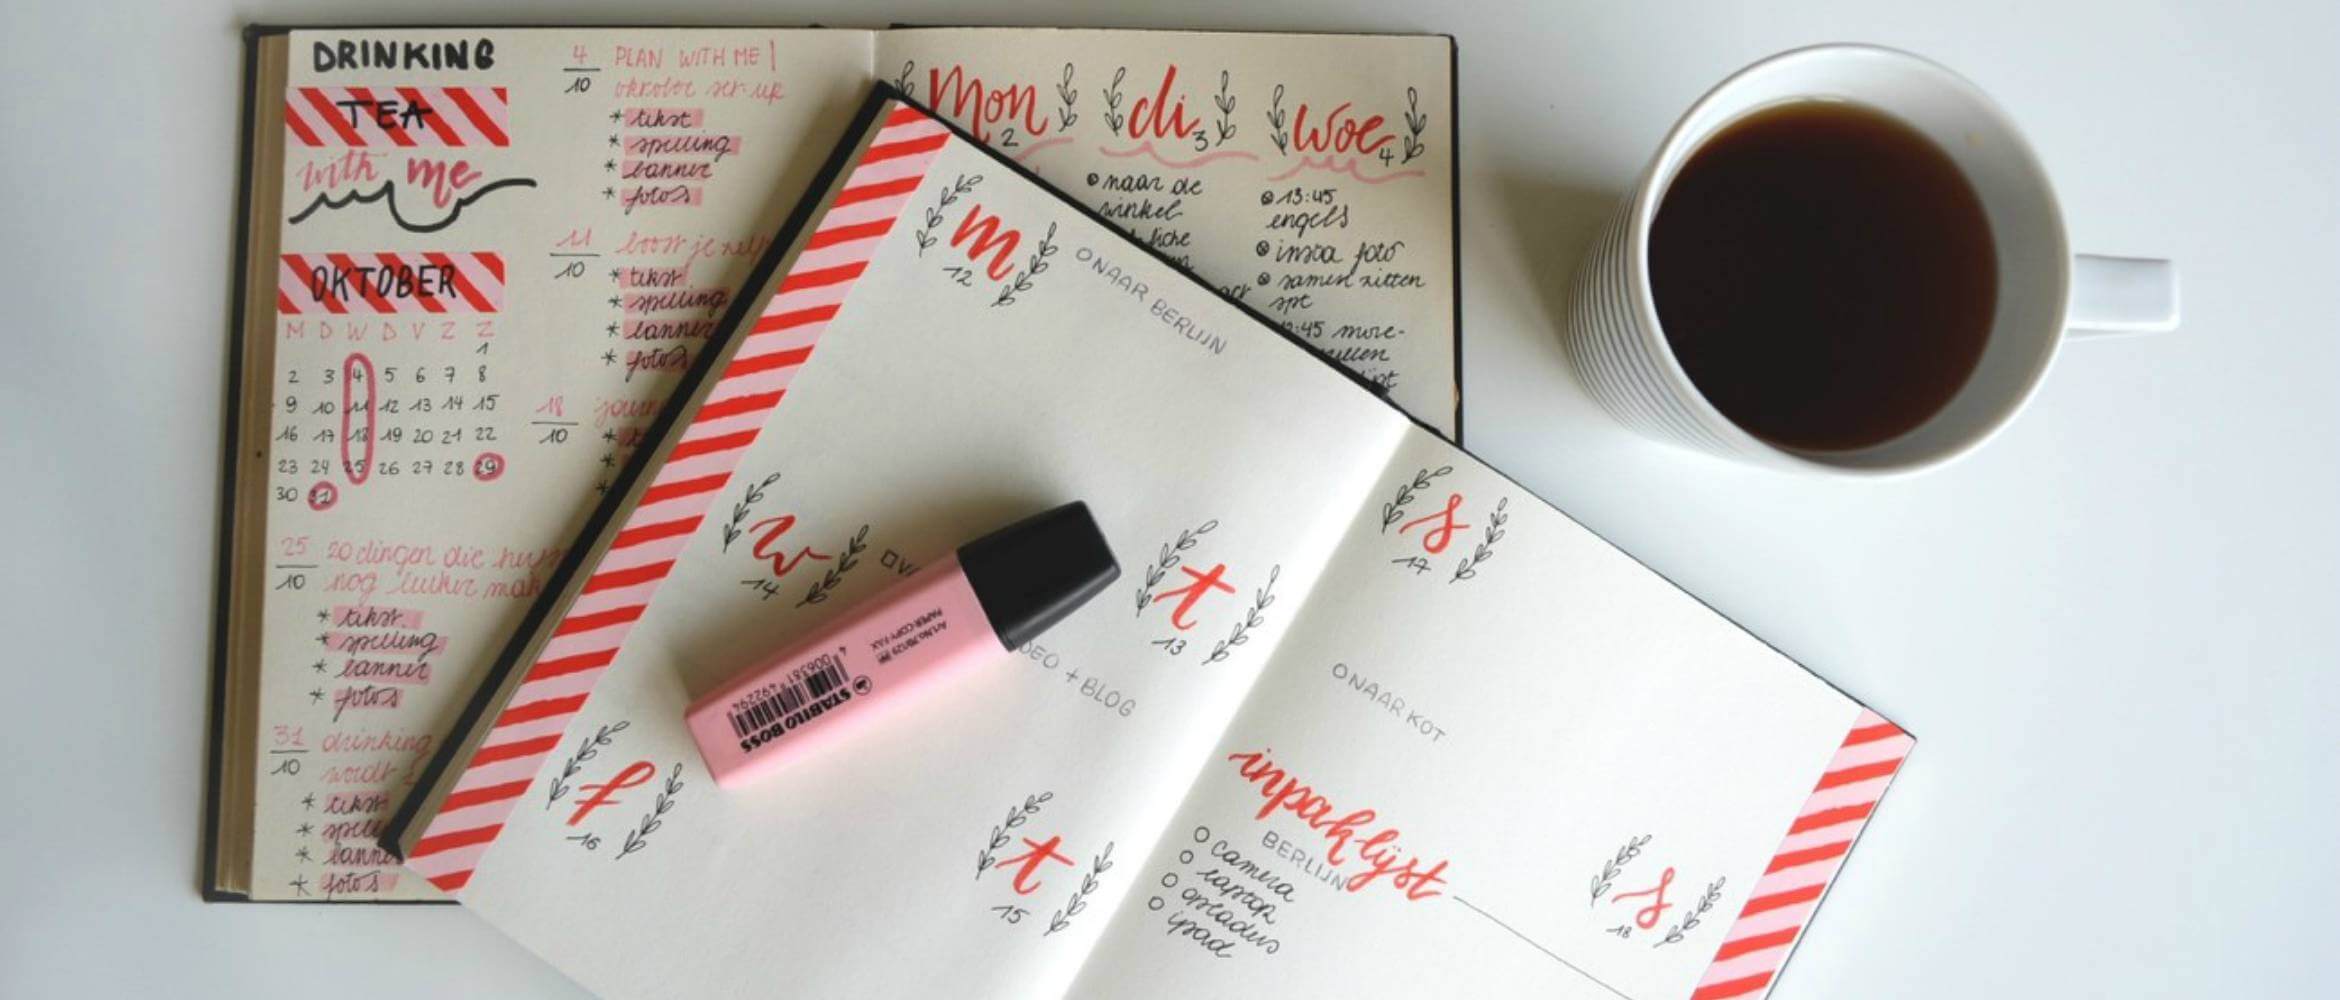 DRINKING
TEA
with me
OKTOBER
M D W D V Z Z
1
2 3 4 5 6 7 8
9 10 11 12 13 14 15
16 17 18 19 20 21 22
23 24 25 26 27 28 29
30 31
25/10 20 dingen die
nog leuker
* tekst
* spelling
* banner
* foto's
31/10 drinking
wordt
* tekst
* banner
* foto's
4/10 PLAN WITH ME |
oktober set-up
* tekst
* spelling
* banner
* foto's
11/10 boost je
* tekst
* spelling
* banner
* foto's
18/10
*
*
*
Mon 2
di 3
woe 4
naar de
winkel
13:45
engels
insta foto
samen zitten
spt
:45
m
12
O NAAR BERLIJN
w
14
t
13
DEO + BLOG
f
16
t
15
STABILO BOSS
4 006381 492294
Art.No.70/129
PAPER-COPY-FAX
s
17
O NAAR KOT
inpaklijst
BERLIJN
O camera
O laptop
O opladers
O ipad
s
18